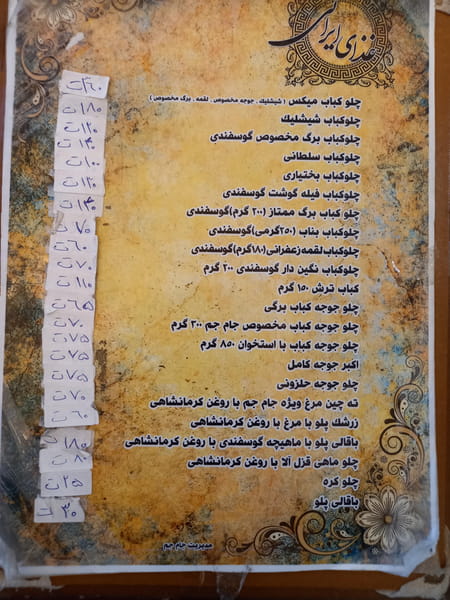 غذای ایرانی
چلو کباب میکس (شیشلیک، جوجه مخصوص، لقمه، برگ مخصوص) ۴۶۰ت
چلوکباب شیشلیک ۱۸۰ت
چلوکباب برگ مخصوص گوسفندی ۱۲۰ت
چلوکباب سلطانی ۱۴۰ت
چلوکباب بختیاری ۱۰۰ت
چلوکباب فیله گوشت گوسفندی ۱۲۰ت
چلو کباب برگ ممتاز (۲۰۰ گرم)گوسفندی ۱۳۰ت
چلوکباب بناب (۲۵۰گرمی)گوسفندی ۷۰ت
چلوکباب لقمه زعفرانی(۱۸۰گرم)گوسفندی ۶۰ت
چلوکباب نگین دار گوسفندی ۲۰۰ گرم ۷۰ت
کباب ترش ۱۵۰ گرم ۱۱۰ت
چلو جوجه کباب برگی ۶۵ت
چلو جوجه کباب مخصوص جام جم ۳۰۰ گرم ۷۰ت
چلو جوجه کباب با استخوان ۸۵۰ گرم ۷۵ت
اکبر جوجه کامل ۷۵ت
چلو جوجه حلزونی ۷۵ت
ته چین مرغ ویژه جام جم با روغن کرمانشاهی ۷۰ت
زرشک پلو با مرغ با روغن کرمانشاهی ۶۰ت
باقالی پلو با ماهیچه گوسفندی با روغن کرمانشاهی ۱۸۰ت
چلو ماهی قزل آلا با روغن کرمانشاهی ۸۰ت
چلو کره ۲۵ت
باقالی پلو ۳۰ت
مدیریت جام جم